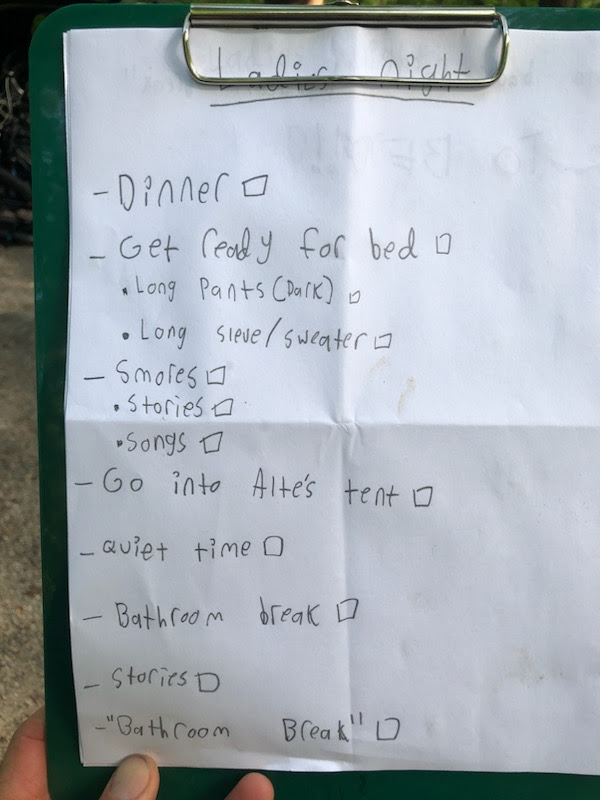 Ladies night
- Dinner
- Get ready for bed
• Long Pants (Dark)
• Long sleve/sweater
- Smores
• Stories
• Songs
- Go into Alte's tent
- Quiet time
- Bathroom break
- Stories
- "Bathroom Break"